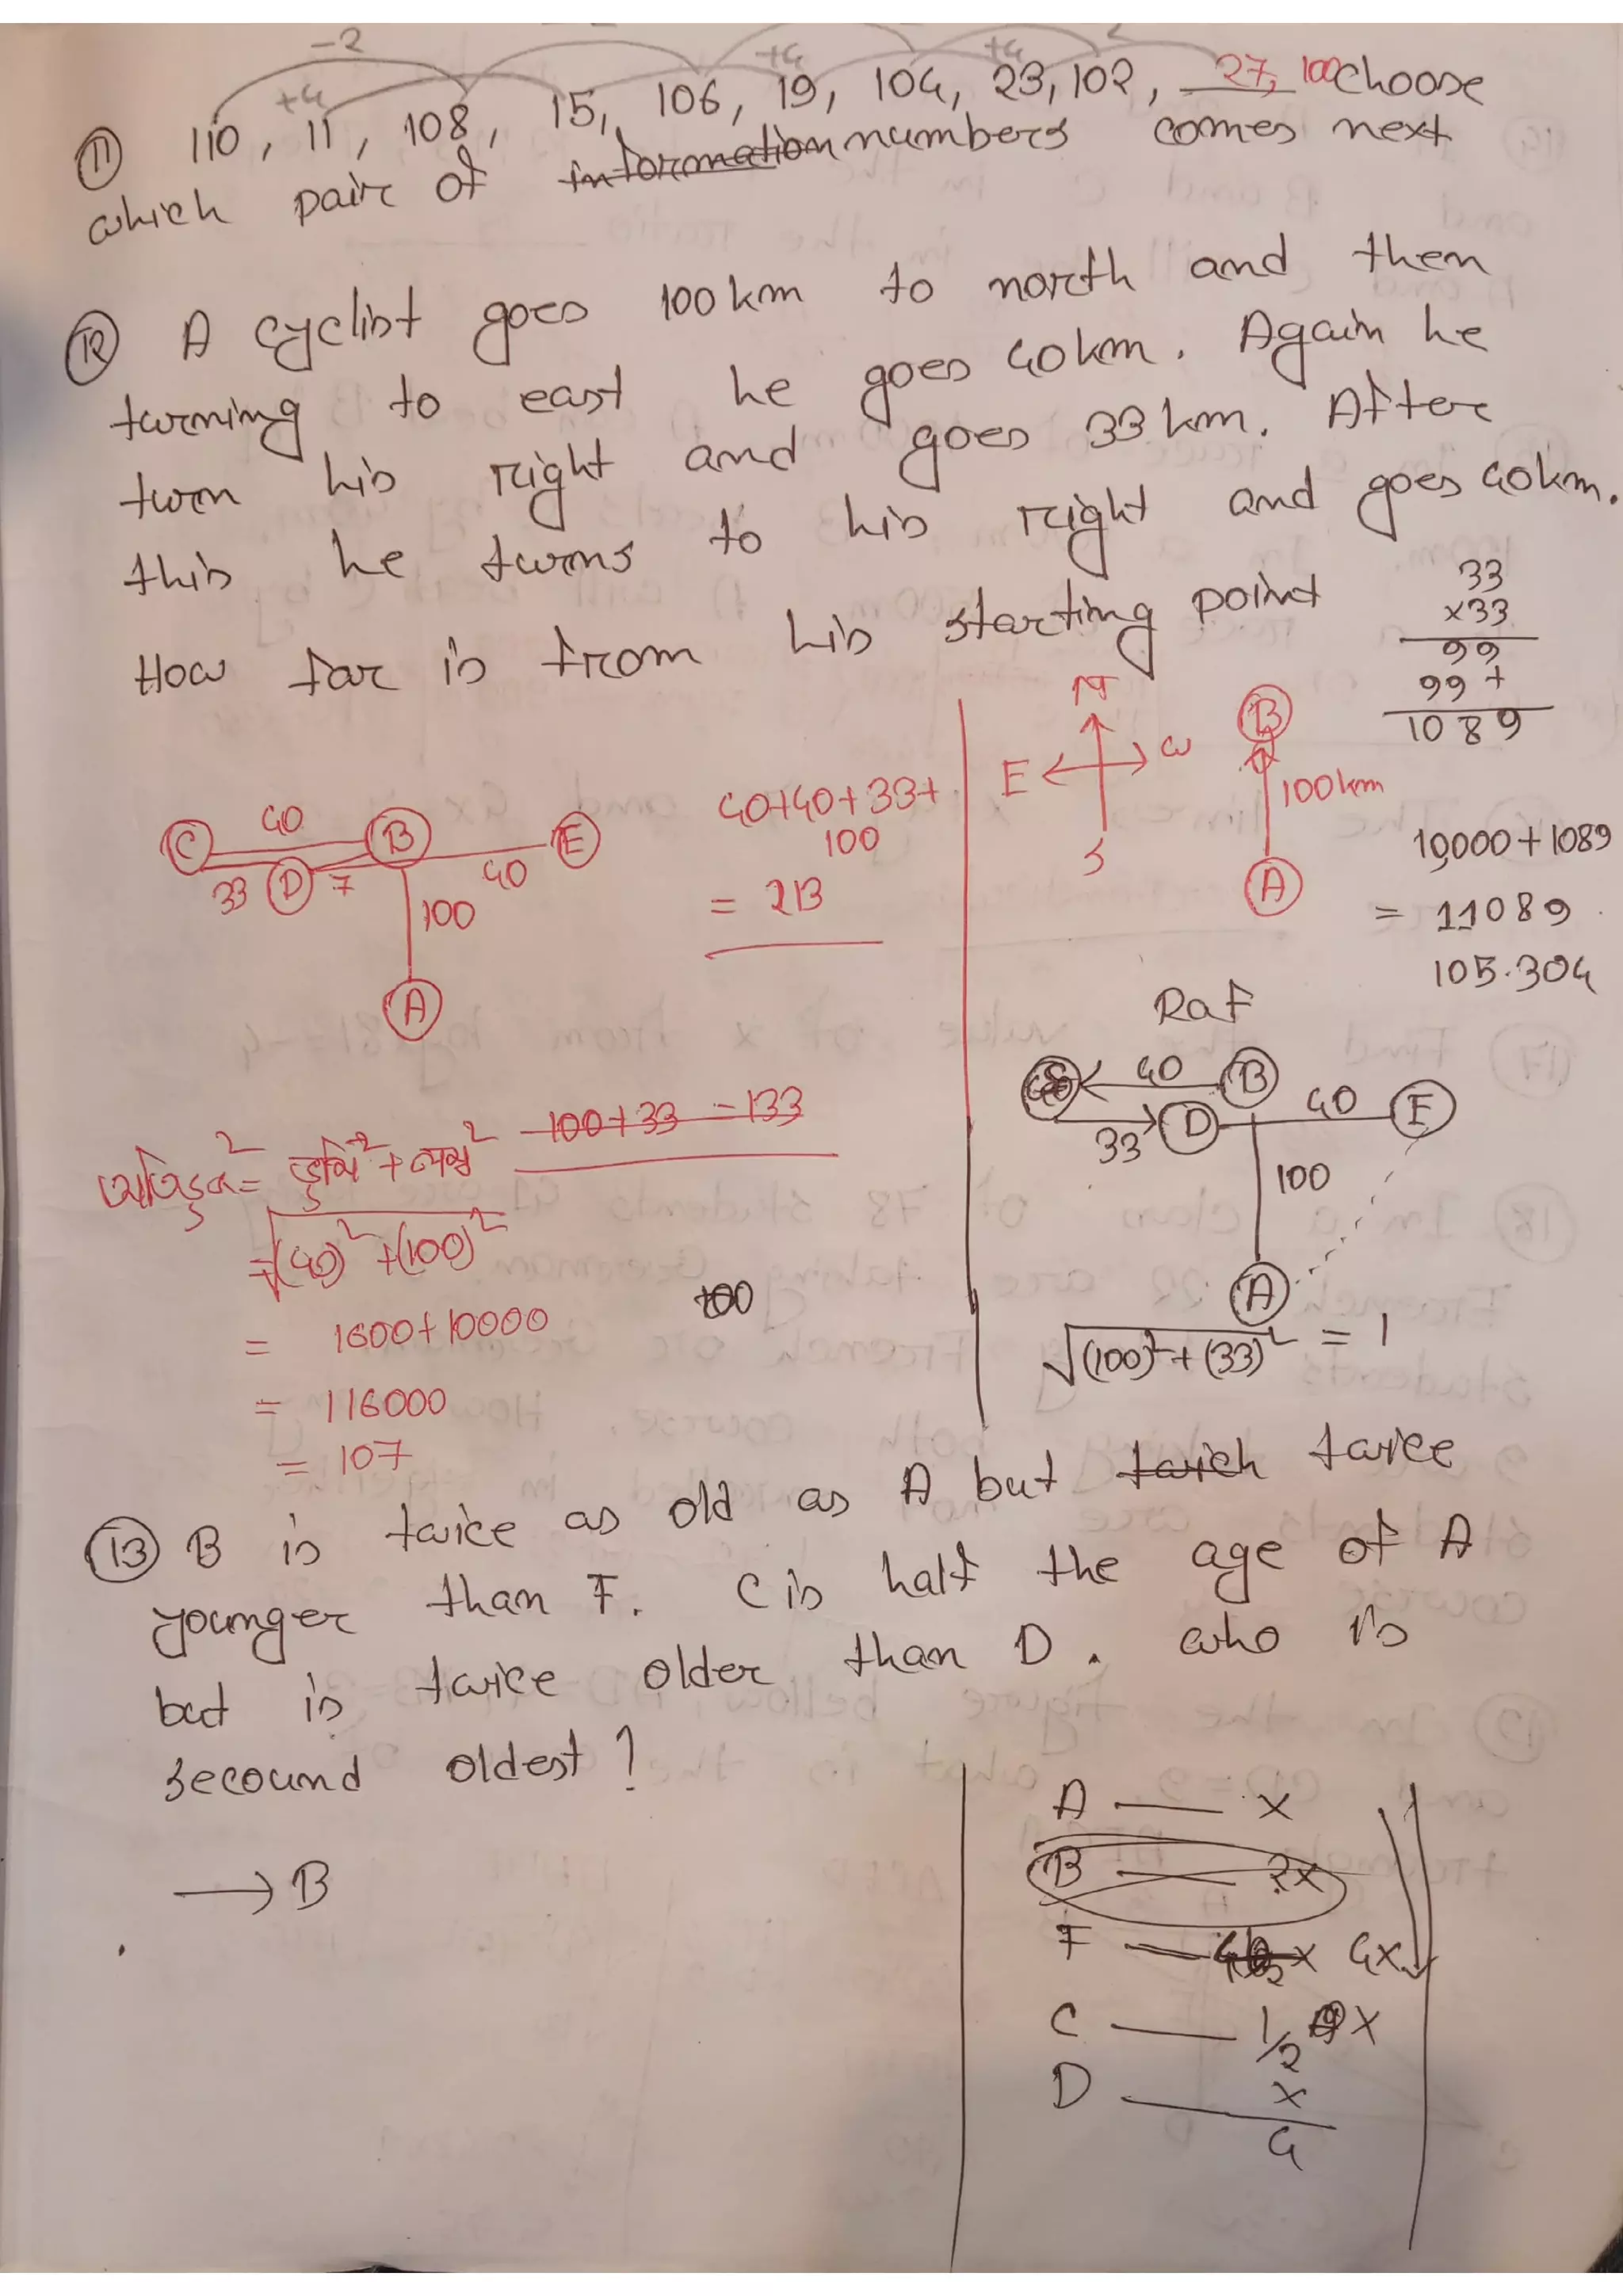 -2
+4
+4
+4
2
⑪ 110, 11, 108, 15, 106, 19, 104, 23, 102, 27, 100 choose
which pair of information numbers comes next
⑫ A cyclist goes 100 km to north and then
turning to east he goes 40 km. Again he
turn his right and goes 33 km. After
this he turns to his right and goes 40 km.
How far is from his starting point
33
×33
99
99 +
1089
N
E W
S
B
100 km
A
10000 + 1089
= 11089
105.304
C 40 B 40 E
33 D 7
100
A
40+40+33+
100
= 213
Raf
40 B
33 D 40 E
100
A
√(100)² + (33)² = 1
অতিভুজ² = ভূমি² + লম্ব² 100+33 = 133
= √(40)² + (100)²
= 1600 + 10000
100
= 116000
= 107
⑬ B is twice as old as A but twich twice
younger than F. C is half the age of A
but is twice older than D. who is
secound oldest?
→ B
A — x
B — 2x
F — 4x
C — 1/2 x
D — x
4